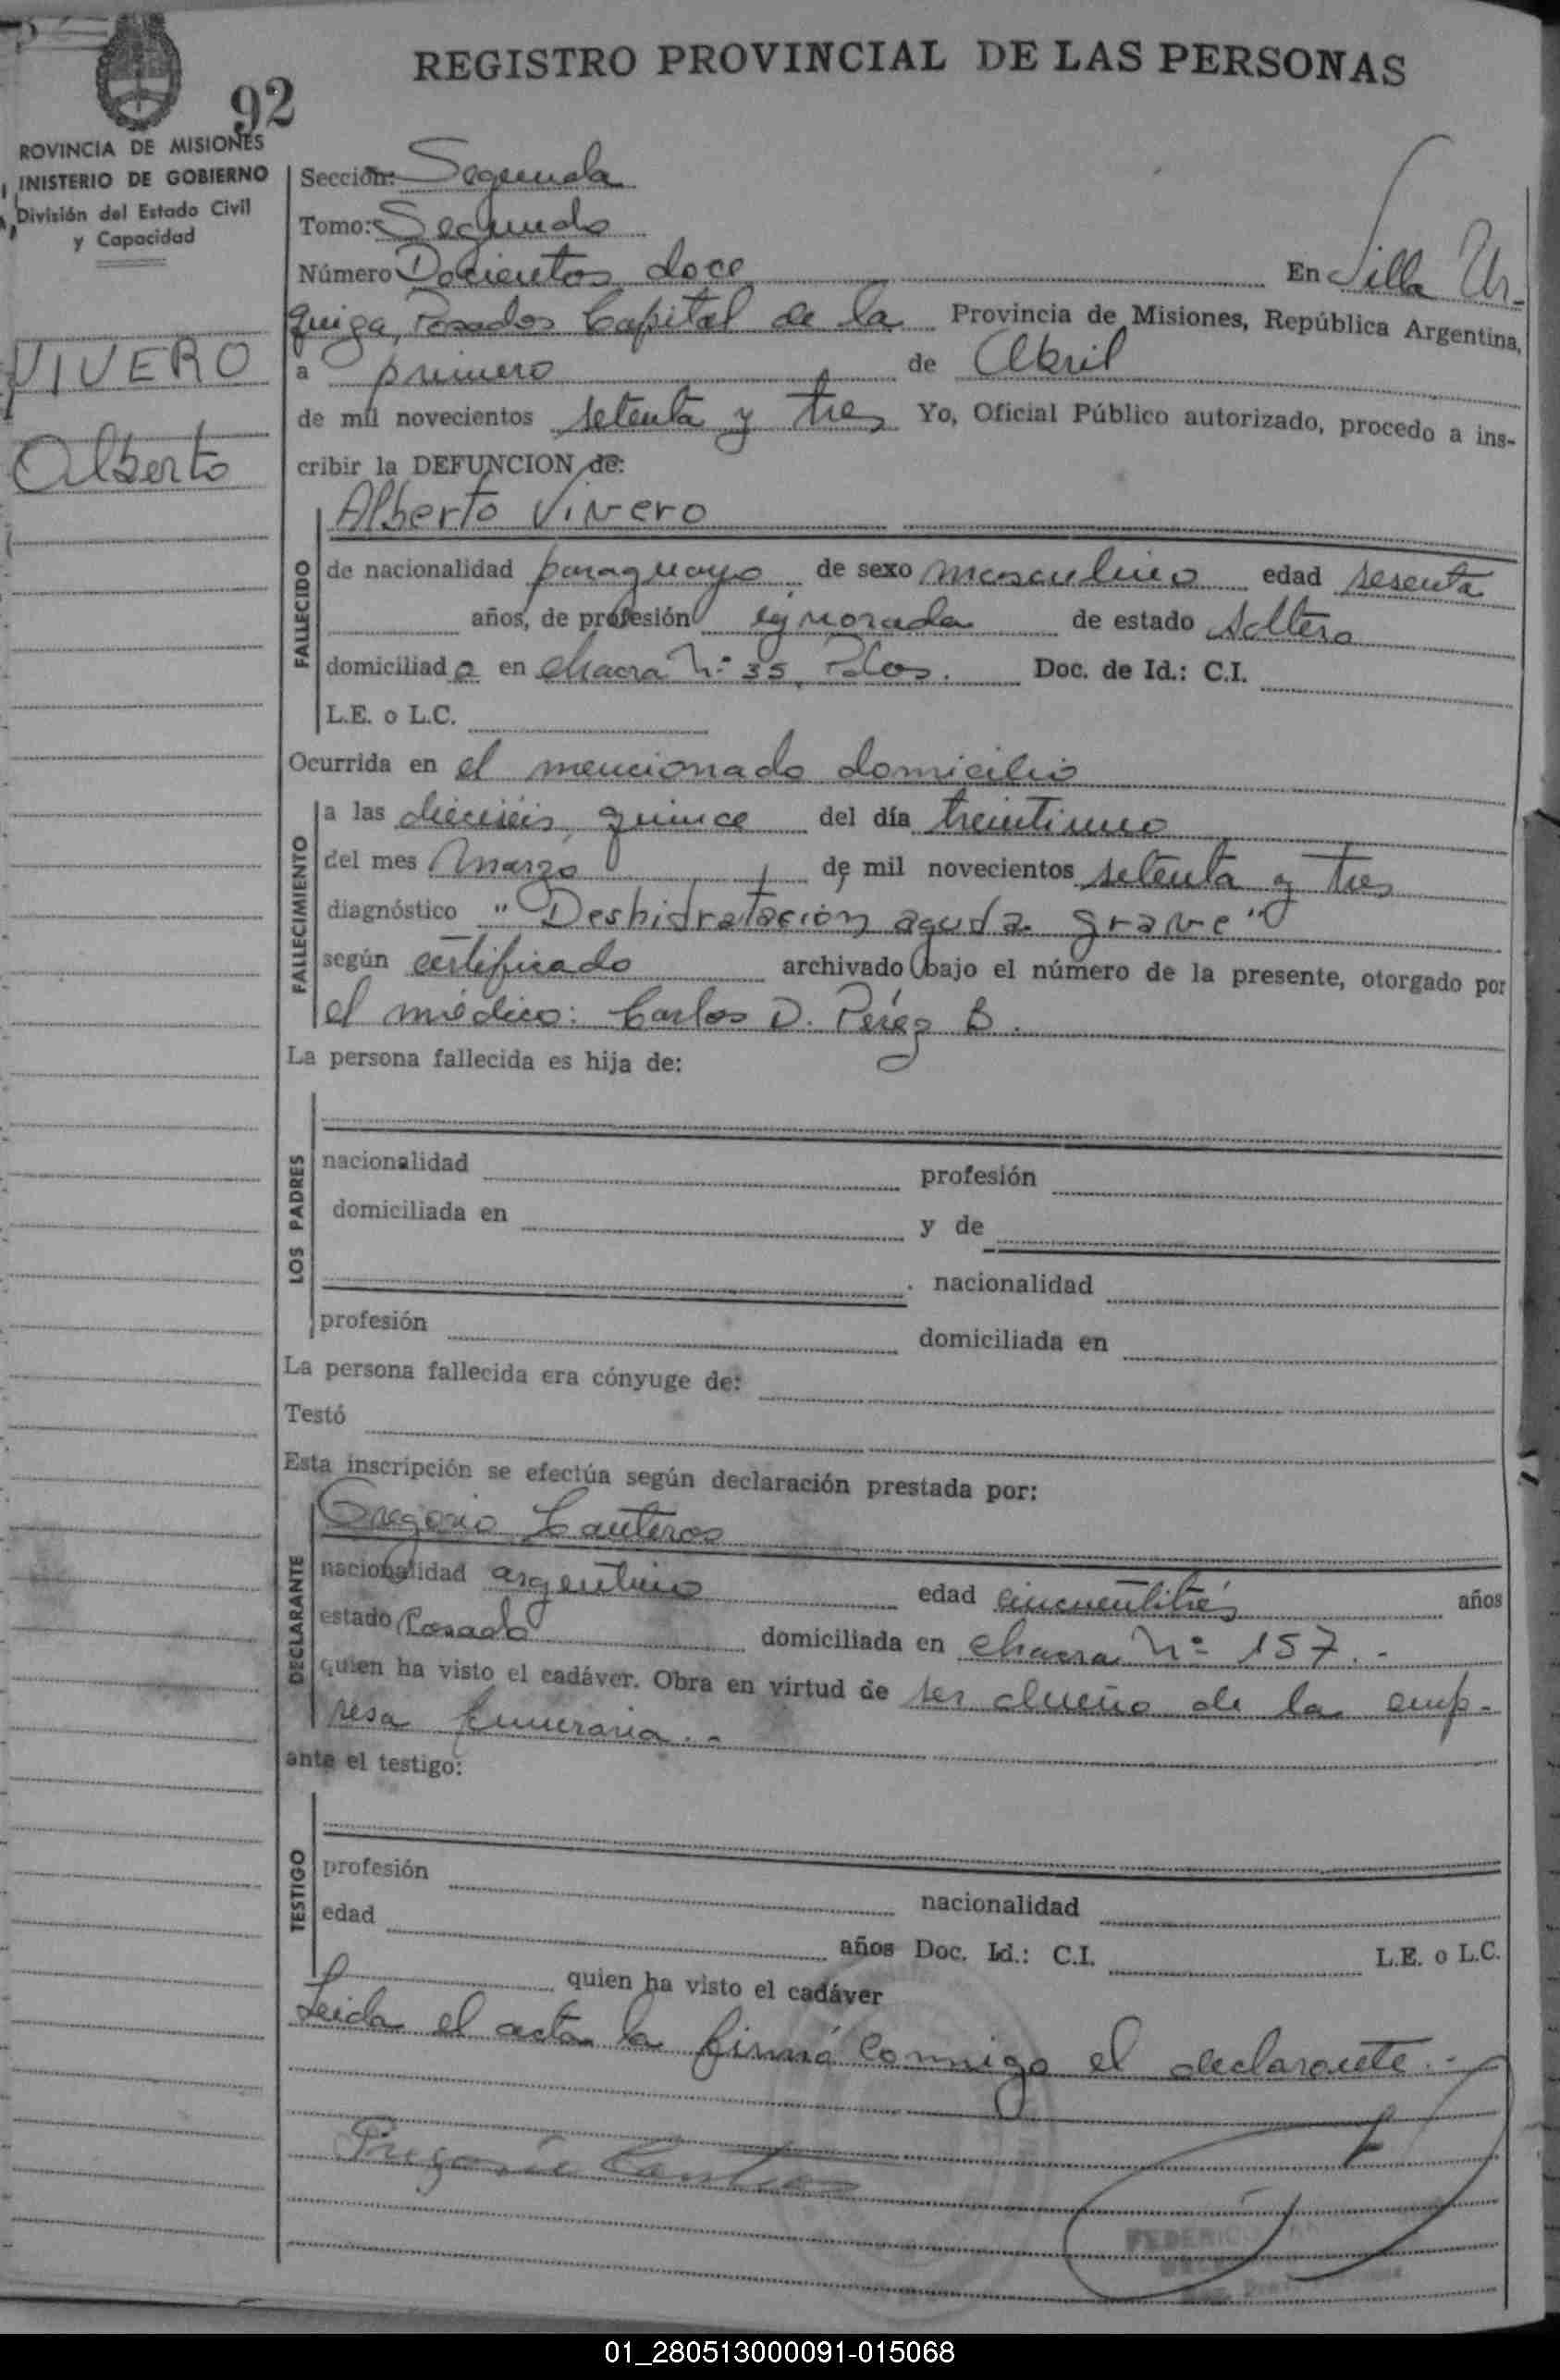 REGISTRO PROVINCIAL DE LAS PERSONAS
92
ROVINCIA DE MISIONES
INISTERIO DE GOBIERNO
División del Estado Civil
y Capacidad
VIVERO
Alberto
Sección: Segunda
Tomo: Segundo
Número Docientos doce En Villa Ur-
quiza, Posadas Capital de la Provincia de Misiones, República Argentina,
a primero de Abril
de mil novecientos setenta y tres Yo, Oficial Público autorizado, procedo a ins-
cribir la DEFUNCION de:
Alberto Vivero
FALLECIDO
de nacionalidad paraguayo de sexo masculino edad sesenta
años, de profesión ignorada de estado soltero
domiciliad o en chacra Nº 35, Pdas. Doc. de Id.: C.I.
L.E. o L.C.
Ocurrida en el mencionado domicilio
FALLECIMIENTO
a las dieciséis, quince del día treintiuno
del mes Marzo de mil novecientos setenta y tres
diagnóstico "Deshidratación aguda grave"
según certificado archivado bajo el número de la presente, otorgado por
el médico: Carlos D. Pérez B.
La persona fallecida es hija de:
LOS PADRES
nacionalidad profesión
domiciliada en y de
nacionalidad
profesión domiciliada en
La persona fallecida era cónyuge de:
Testó
Esta inscripción se efectúa según declaración prestada por:
DECLARANTE
Gregorio Canteros
nacionalidad argentino edad cincuentitrés años
estado Casado domiciliada en chacra Nº 157.-
quien ha visto el cadáver. Obra en virtud de ser dueño de la emp-
resa funeraria.-
ante el testigo:
TESTIGO
profesión nacionalidad
edad años Doc. Id.: C.I. L.E. o L.C.
quien ha visto el cadáver
Leida el acta la firmó conmigo el declarante.-
Gregorio Canteros
FEDERICO
01_280513000091-015068